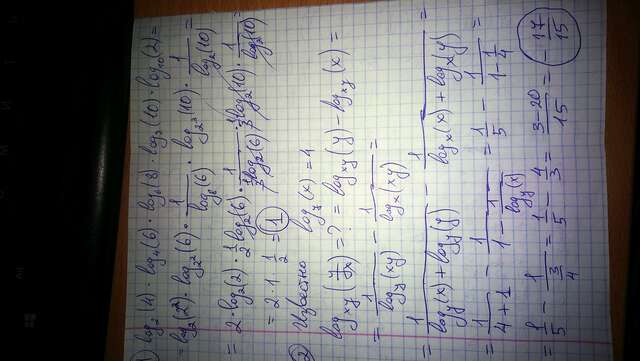 1) log₂(4) · log₄(6) · log₆(8) · log₈(10) · log₁₀(2) =
= log₂(2²) · log₂²(6) · 1/log₈(6) · log₂³(10) · 1/log₂(10) =
= 2 · log₂(2) · 1/2 log₂(6) · 1/(1/3 log₂(6)) · 1/3 log₂(10) · 1/log₂(10) =
= 2 · 1 · 1/2 = 1
2) log_y(x) = 4
log_xy(y/x) = ? = log_xy(y) - log_xy(x) =
= 1/log_y(xy) - 1/log_x(xy) =
= 1/(log_y(x) + log_y(y)) - 1/(log_x(x) + log_x(y)) =
= 1/(4+1) - 1/(1 - 1/log_y(x)) = 1/5 - 1/(1 - 1/4) =
= 1/5 - 1/(3/4) = 1/5 - 4/3 = (3-20)/15 = - 17/15